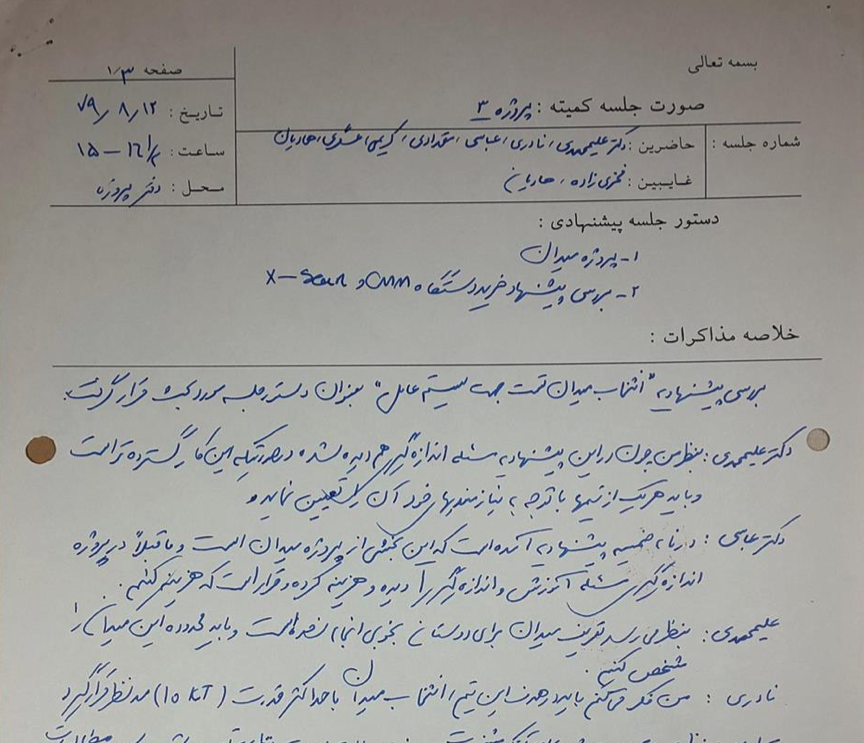 بسمه تعالی
صفحه ۱/۳
صورت جلسه کمیته : پروژه ۳
تاریخ : ۷۹/۸/۱۲
ساعت : ۱۵ –
محل : دفتر پروژه
شماره جلسه :
حاضرین : دکتر علیمحمدی، نادری، عباسی، مقدادی، کریمی، عسگری، هادیان
غایبین : فخری زاده، هادیان
دستور جلسه پیشنهادی :
۱- پروژه میدان
۲- بررسی پیشنهاد خرید دستگاه CMM و X-Scan
خلاصه مذاکرات :
بررسی پیشنهادیه "انتخاب میدان تست جهت سیستم عامل" بعنوان دستور جلسه مورد بحث قرار گرفت.
دکتر علیمحمدی : بنظر من چون در این پیشنهادیه مسئله اندازه‌گیری هم دیده شده در صورتیکه این کار گسترده تر است
و باید هر یک از تیمها با توجه به نیازمندیهای خود آن را تعیین نماید و
دکتر عباسی : در نامه ضمیمه پیشنهادیه آمده است که این بخشی از پروژه میدان است و ما قبلاً در پروژه
اندازه‌گیری مسئله آموزش و اندازه‌گیری را دیده و هزینه کرده و قرار است که هزینه کنیم.
علیمحمدی : بنظر می رسد تعریف میدان برای دوستان بخوبی انجام نشده است و باید محدوده این میدان را
مشخص کنیم.
نادری : من فکر می‌کنم باید در هدف این تیم، انتخاب میدان با حداکثر قدرت (10 KT) مد نظر قرار گیرد